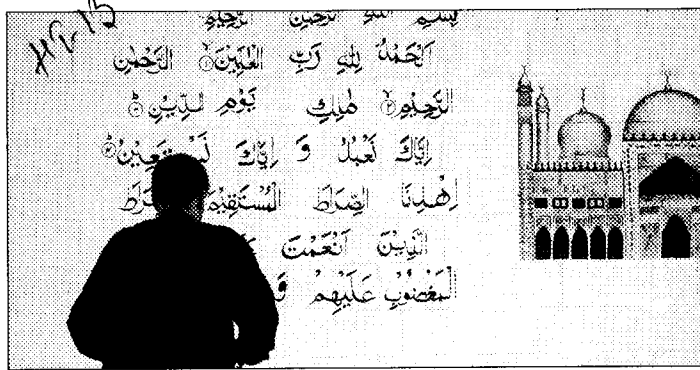 HI-13
بِسْمِ اللّٰهِ الرَّحْمٰنِ الرَّحِيْمِ
اَلْحَمْدُ لِلّٰهِ رَبِّ الْعٰلَمِيْنَ ۙ الرَّحْمٰنِ
الرَّحِيْمِ ۙ مٰلِكِ يَوْمِ الدِّيْنِ ؕ
اِيَّاكَ نَعْبُدُ وَ اِيَّاكَ نَسْتَعِيْنُ ؕ
اِهْدِنَا الصِّرَاطَ الْمُسْتَقِيْمَ
الَّذِيْنَ اَنْعَمْتَ
الْمَغْضُوْبِ عَلَيْهِمْ وَ